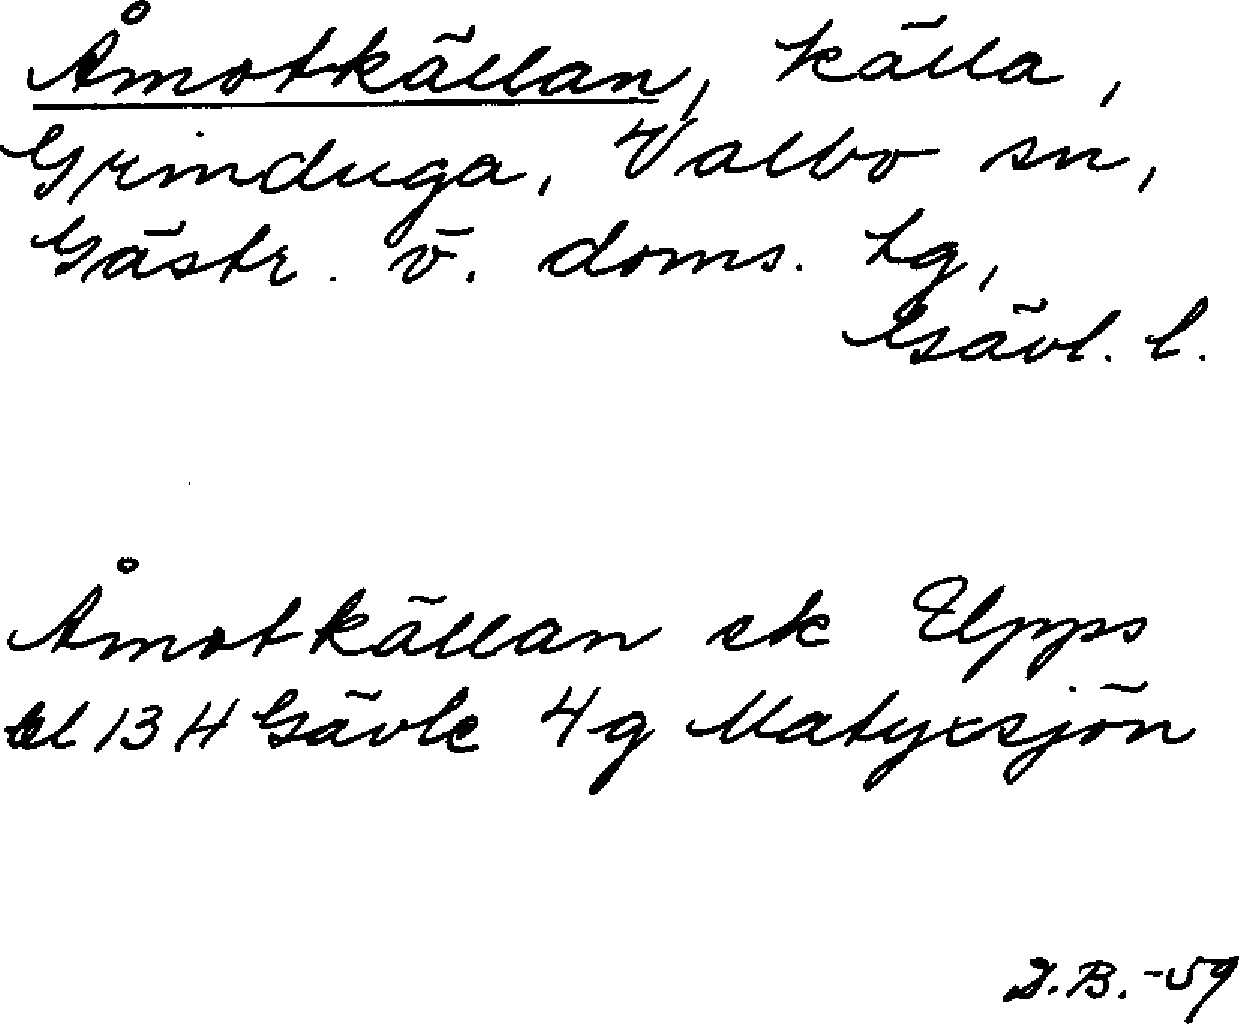 Åmotkällan, källa,
Grinduga, Valbo sn,
Gästr. ö. doms. tg,
Gävl. l.
Åmotkällan ek Upps
bl 13 H Gävle 4g Matyxsjön
J.B. -59